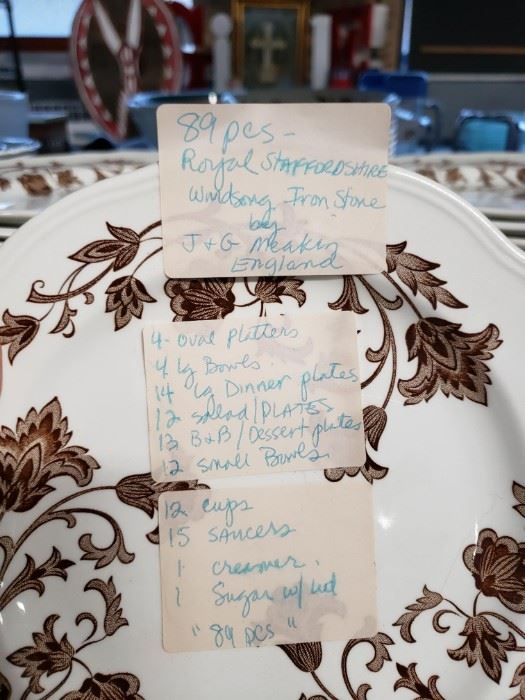 89 pcs -
Royal STAFFORDSHIRE
Windsong Iron Stone
by
J + G Meakin
England
4 - oval platters
4 lg Bowls.
14 lg Dinner plates
12 salad / PLATES
13 B+B / Dessert plates
12 small Bowls
12 cups
15 SAUCERS
1 creamer.
1 Sugar w/ lid
" 89 pcs "